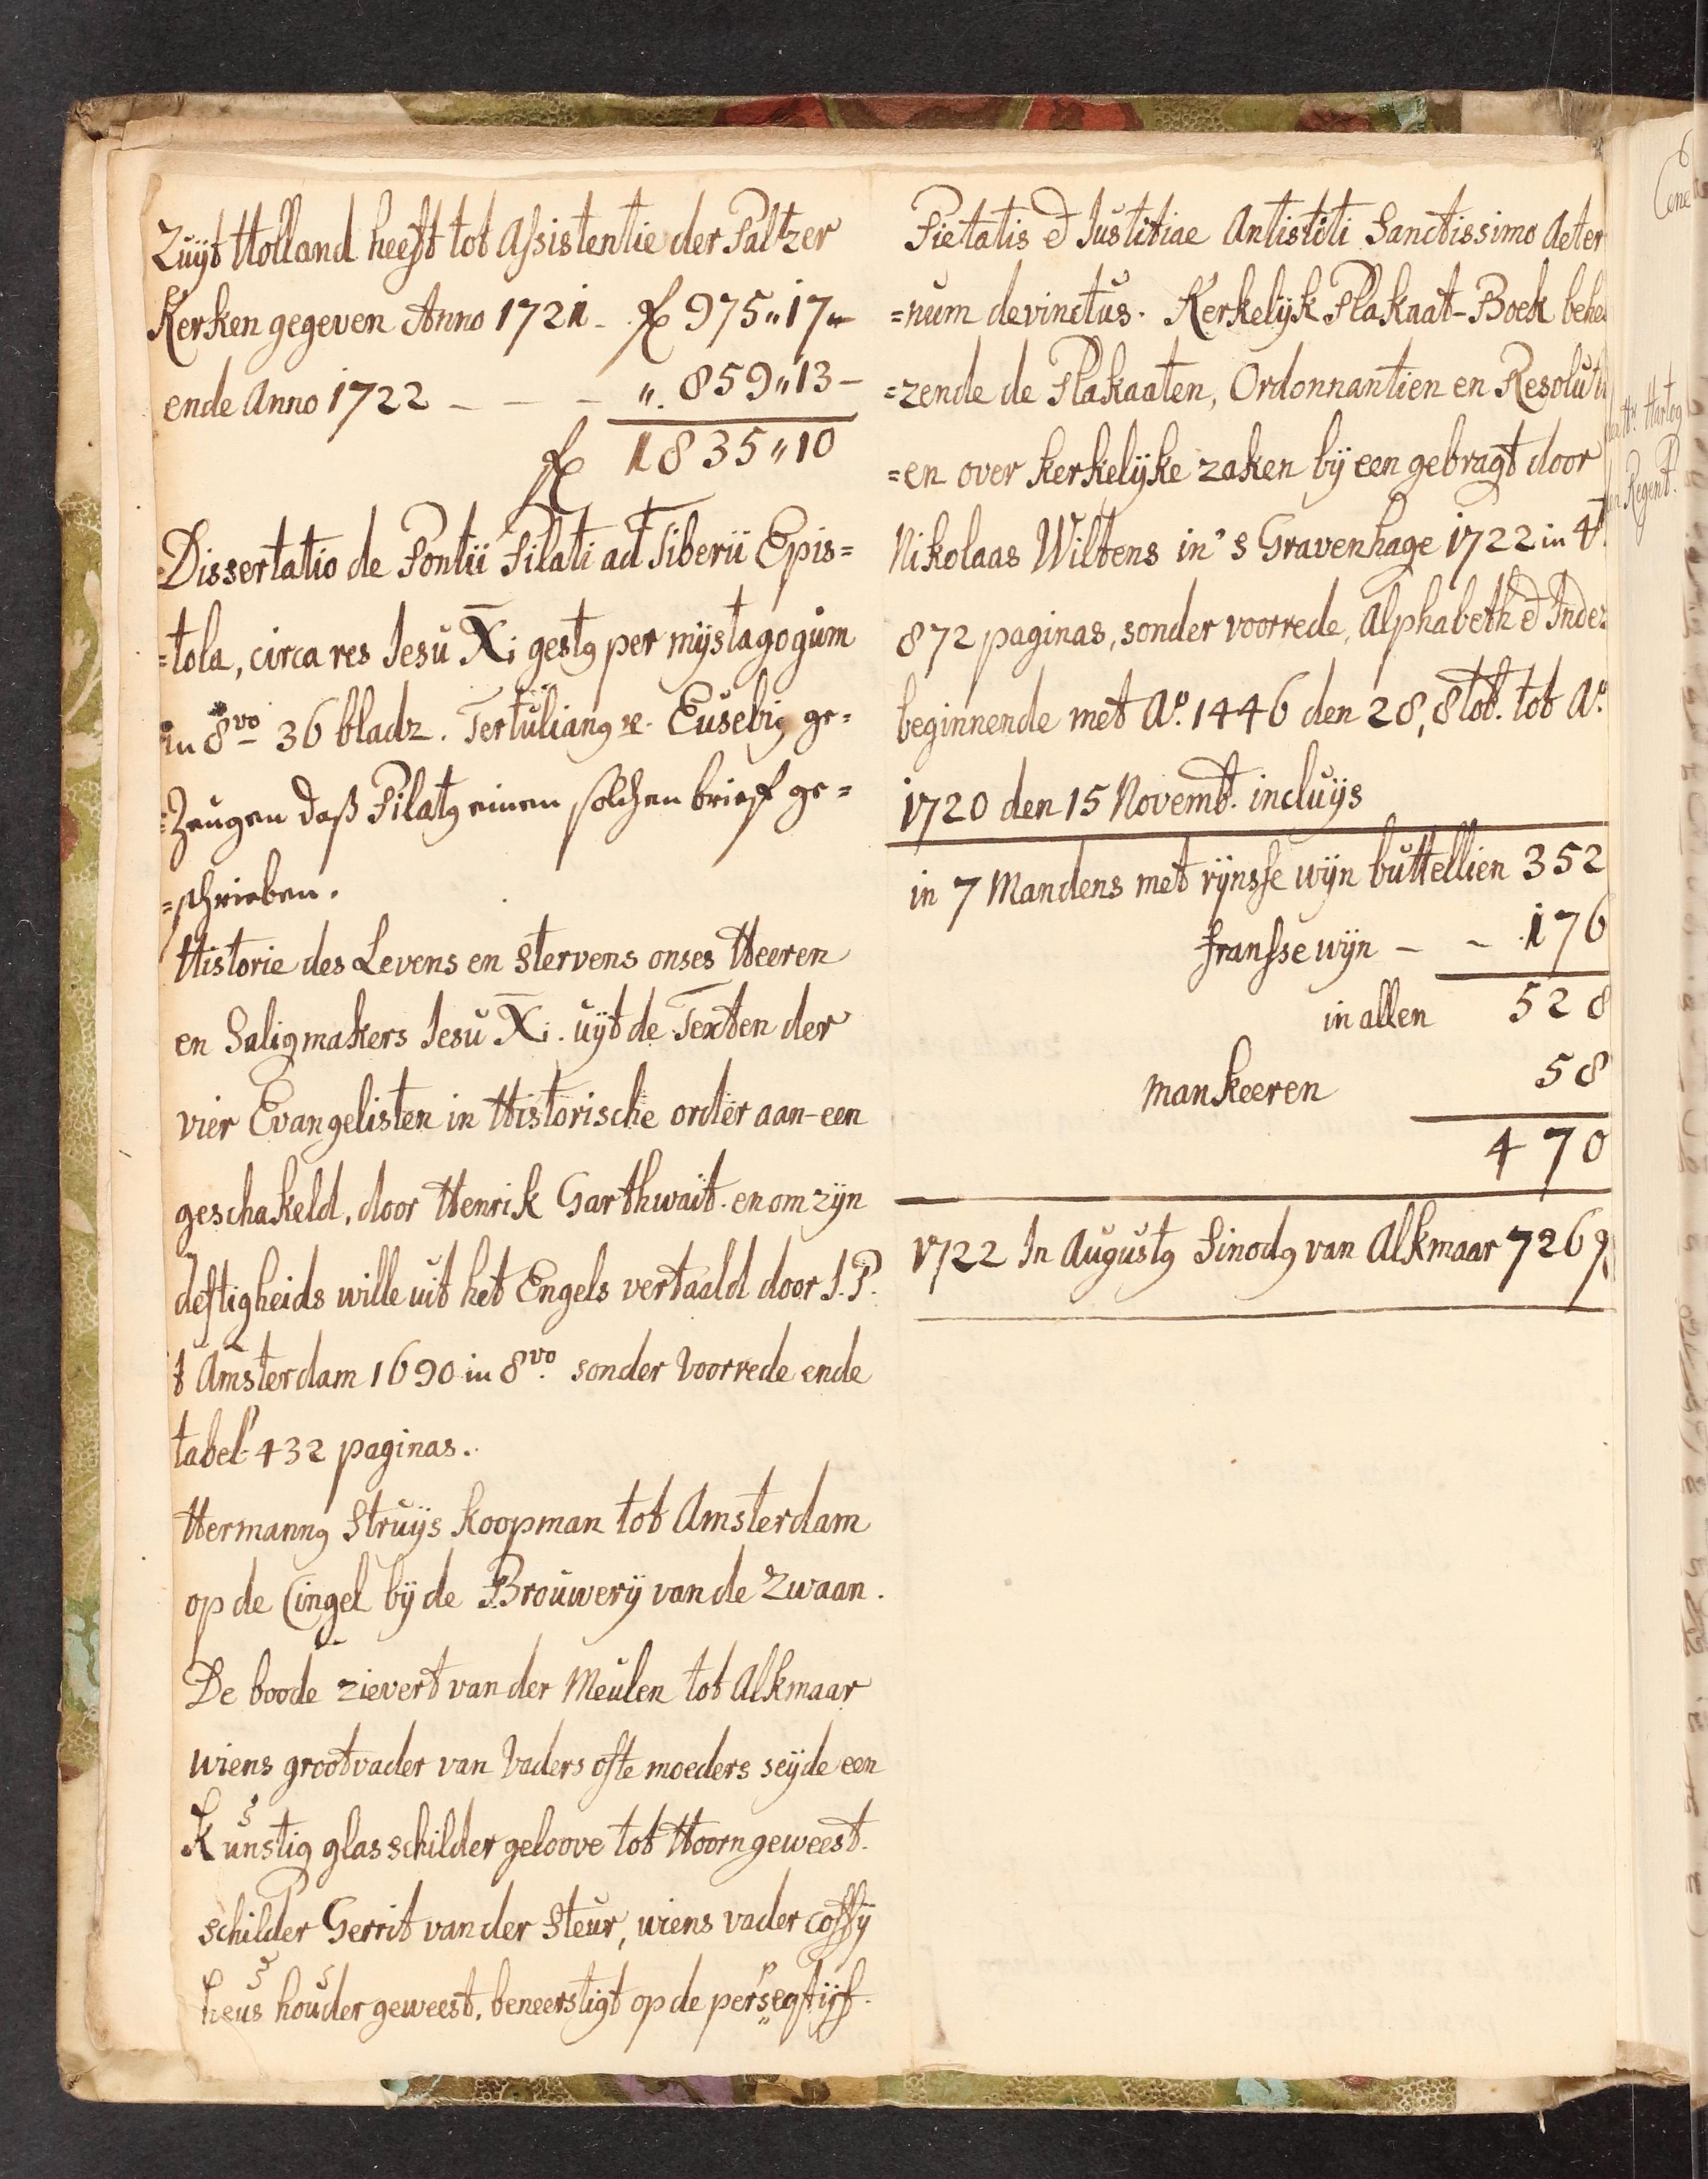 Zuyt Holland heeft tot Assistentie der Paltzer
Kerken gegeven Anno 1721 - f 975 " 17 "-
ende Anno 1722 - - - ". 859 " 13 -
f 1835 " 10
Dissertatio de Pontii Pilati ad Tiberii Epis=
=tola, circa res Jesu Xi gestꝯ per mystagogum
in 8vo 36 bladz. Tertulianꝯ &. Eusebiꝯ ge=
=zeugen daß Pilatꝯ einen solchen brieff ge=
=schrieben.
Historie des Levens en Stervens onses Heeren
en Saligmakers Jesu Xi. uyt de Texten der
vier Evangelisten in Historische order aan-een
geschakeld, door Henrik Garthwait. en om zijn
deftigheids wille uit het Engels vertaald door J. P.
t Amsterdam 1690 in 8vo. sonder Voorrede ende
tabel 432 paginas.
Hermannꝯ Struÿs Koopman tot Amsterdam
op de Cingel bÿ de Brouwerÿ van de Zwaan.
De boode zievert van der Meulen tot Alkmaar
wiens grootvader van Vaders ofte moeders seÿde een
Kunstig glasschilder geloove tot Hoorn geweest.
schilder Gerrit van der Steur, wiens vader coffÿ
heus houder geweest, beneerstigt op de
Pietatis & Justitiae Antistiti Sanctissimo Aeter
=num devinctus. Kerkelÿk Plakaat-Boek behe
=zende de Plakaaten, Ordonnantien en Resoluti
=en over kerkelÿke zaken bÿ een gebragt door
Nikolaas Wiltens in's Gravenhage 1722 in 4t.
872 paginas, sonder voorrede, Alphabeth & Index
beginnende met Ao. 1446 den 28, 8tob. tot Ao.
1720 den 15 Novemb. incluÿs
in 7 Mandens met rÿnsse wÿn buttellien 352
fransse wÿn - - 176
in allen 528
mankeeren 58
470
1722 In Augustꝯ Sinodꝯ van Alkmaar 726
Hr. Hartog
Regent.